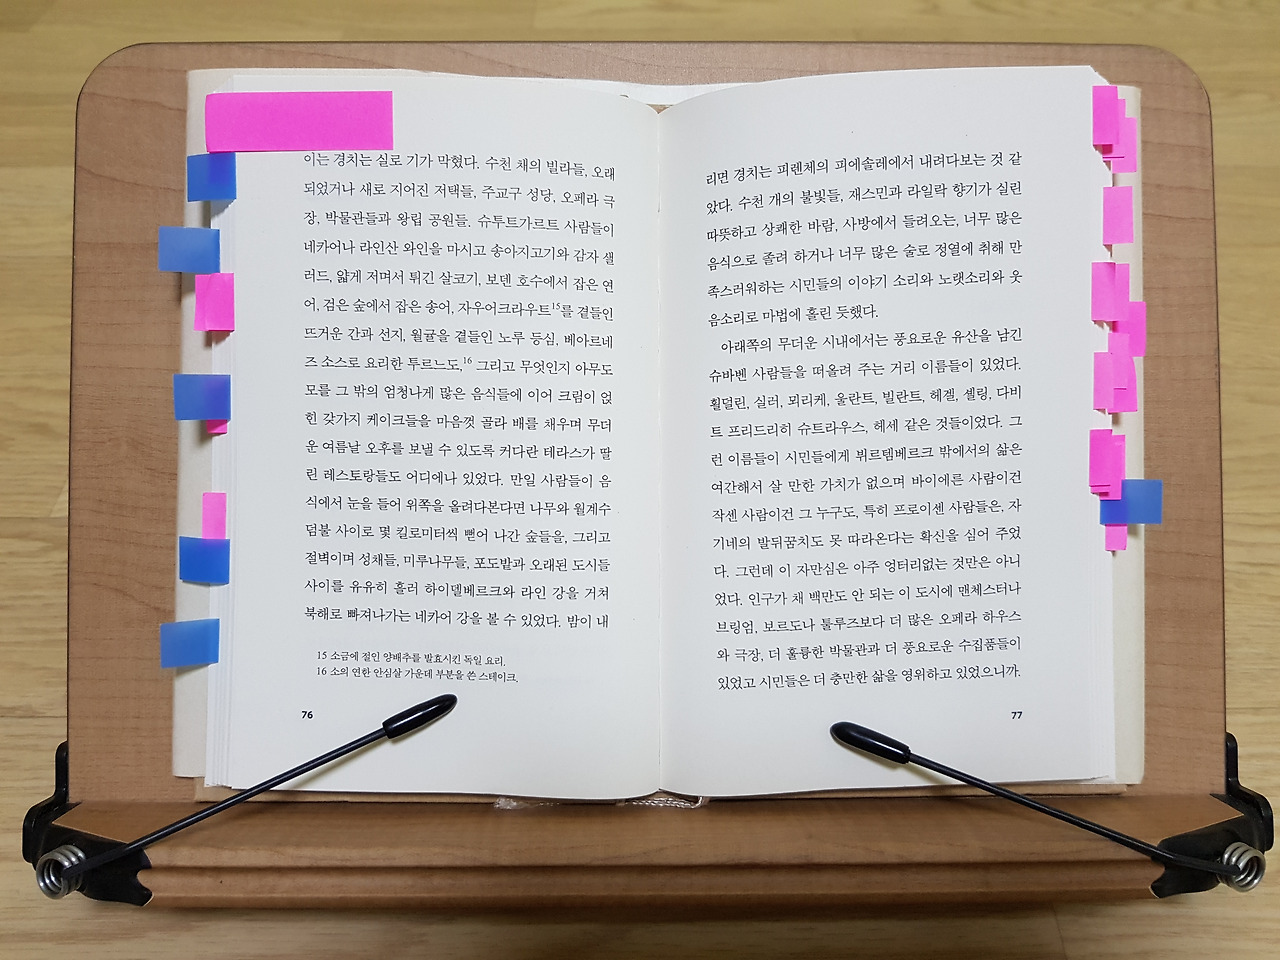 이는 경치는 실로 기가 막혔다. 수천 채의 빌라들, 오래
되었거나 새로 지어진 저택들, 주교구 성당, 오페라 극
장, 박물관들과 왕립 공원들. 슈투트가르트 사람들이
네카어나 라인산 와인을 마시고 송아지고기와 감자 샐
러드, 얇게 저며서 튀긴 살코기, 보덴 호수에서 잡은 연
어, 검은 숲에서 잡은 송어, 자우어크라우트15를 곁들인
뜨거운 간과 선지, 월귤을 곁들인 노루 등심, 베아르네
즈 소스로 요리한 투르느도,16 그리고 무엇인지 아무도
모를 그 밖의 엄청나게 많은 음식들에 이어 크림이 얹
힌 갖가지 케이크들을 마음껏 골라 배를 채우며 무더
운 여름날 오후를 보낼 수 있도록 커다란 테라스가 딸
린 레스토랑들도 어디에나 있었다. 만일 사람들이 음
식에서 눈을 들어 위쪽을 올려다본다면 나무와 월계수
덤불 사이로 몇 킬로미터씩 뻗어 나간 숲들을, 그리고
절벽이며 성채들, 미루나무들, 포도밭과 오래된 도시들
사이를 유유히 흘러 하이델베르크와 라인 강을 거쳐
북해로 빠져나가는 네카어 강을 볼 수 있었다. 밤이 내
15 소금에 절인 양배추를 발효시킨 독일 요리.
16 소의 연한 안심살 가운데 부분을 쓴 스테이크.
76
리면 경치는 피렌체의 피에솔레에서 내려다보는 것 같
았다. 수천 개의 불빛들, 재스민과 라일락 향기가 실린
따뜻하고 상쾌한 바람, 사방에서 들려오는, 너무 많은
음식으로 졸려 하거나 너무 많은 술로 정열에 취해 만
족스러워하는 시민들의 이야기 소리와 노랫소리와 웃
음소리로 마법에 홀린 듯했다.
아래쪽의 무더운 시내에서는 풍요로운 유산을 남긴
슈바벤 사람들을 떠올려 주는 거리 이름들이 있었다.
횔덜린, 실러, 뫼리케, 울란트, 빌란트, 헤겔, 셸링, 다비
트 프리드리히 슈트라우스, 헤세 같은 것들이었다. 그
런 이름들이 시민들에게 뷔르템베르크 밖에서의 삶은
여간해서 살 만한 가치가 없으며 바이에른 사람이건
작센 사람이건 그 누구도, 특히 프로이센 사람들은, 자
기네의 발뒤꿈치도 못 따라온다는 확신을 심어 주었
다. 그런데 이 자만심은 아주 엉터리없는 것만은 아니
었다. 인구가 채 백만도 안 되는 이 도시에 맨체스터나
브링엄, 보르도나 툴루즈보다 더 많은 오페라 하우스
와 극장, 더 훌륭한 박물관과 더 풍요로운 수집품들이
있었고 시민들은 더 충만한 삶을 영위하고 있었으니까.
77